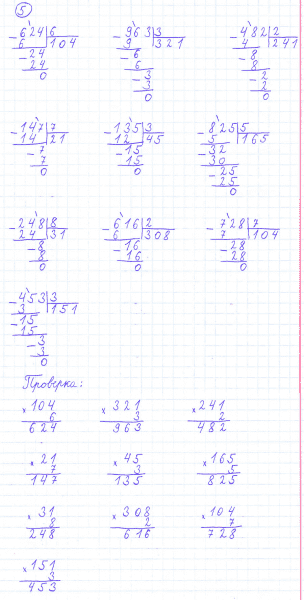 5
-624|6 -963|3 -482|2
6 |104 9 |321 4 |241
-24 -6 -8
24 6 8
0 -3 -2
3 2
0 0
-147|7 -135|3 -825|5
14 |21 12 |45 5 |165
-7 -15 -32
7 15 30
0 0 -25
25
0
-248|8 -616|2 -728|7
24 |31 6 |308 7 |104
-8 -16 -28
8 16 28
0 0 0
-453|3
3 |151
-15
15
-3
3
0
Проверка:
×104 ×321 ×241
6 3 2
624 963 482
×21 ×45 ×165
7 3 5
147 135 825
×31 ×308 ×104
8 2 7
248 616 728
×151
3
453